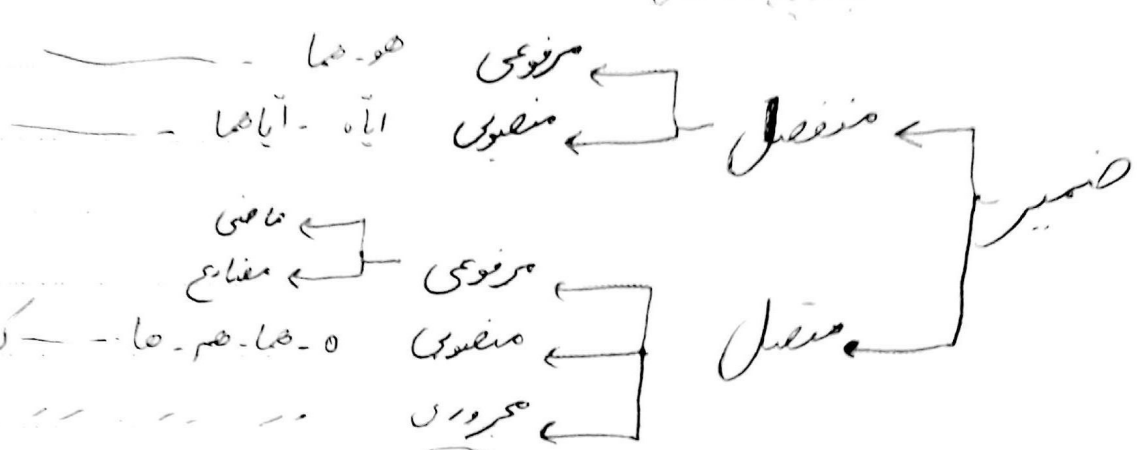 ضمیر
منفصل
مرفوعی هو - هما -
منصوبی ایّاه - ایّاهما -
متصل
مرفوعی
ماضی
مضارع
منصوبی ه - هما - هم - ها - - ک
مجروری " " " "